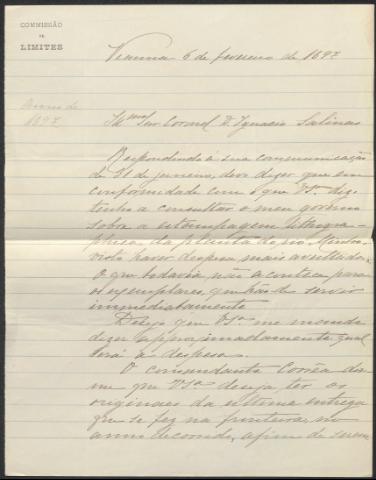 COMMISSÃO
DE
LIMITES
Vienna 6 de fevereiro de 1897
Annos de
1897
Illmo Snr Coronel D. Ignacio Salinas
Respondendo á sua communicação
de 31 de janeiro, devo dizer que em
conformidade com o que VSa diz,
tenho a consultar o meu governo
sobre a estampagem lithogra-
phica da planta do rio
visto haver despesa mais avultada
O que todavia não acontece para
os exemplares, que hão de servir
immediatamente
Desejo que VSa me mande
dizer approximadamente qual
será a despesa.
O comandante Corrêa diz
me que VSa deseja ter os
originaes da ultima entrega
que se fez na fronteira, no
anno decorrido, afim de serem